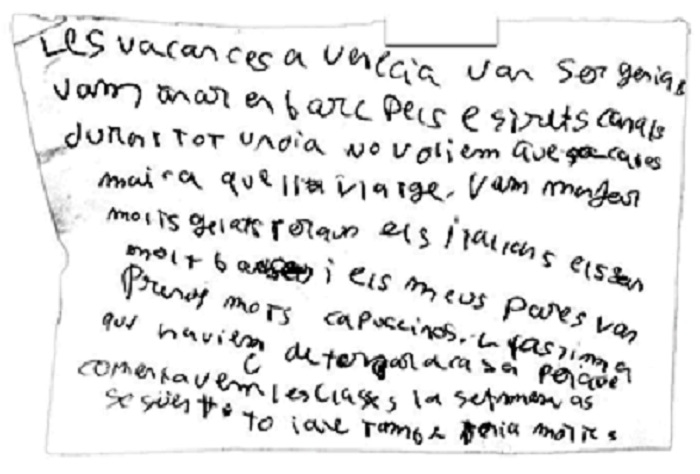 Les vacances a Venecia van ser genias
vam anar en barc pels estrets canals
durant tot un dia no voliem que sa cabes
mai aquell viatge. Vam menjar
molts gelats perque els italians els fan
molt bons i els meus pares van
prendre mots capuccinos. Llastima
que haviem de tornar a casa perque
començavem les classes la setmana
següent. to i aixe tambe tenia moltes